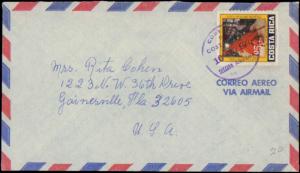 COSTA RICA
CORREO AEREO
VIA AIRMAIL
Mrs. Rita Cohen
1223 N.W. 36th Drive
Gainesville, Fla 32605
U.S.A.
20